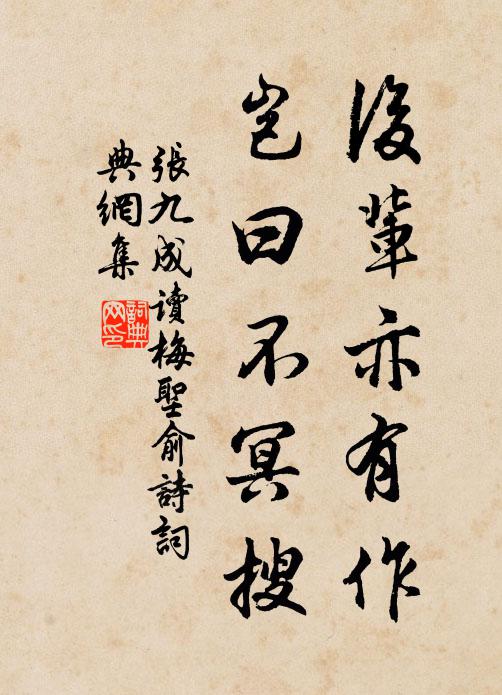 後輩亦有作
豈曰不冥搜
張九成讀梅聖俞詩詞
典網集
詞典
网印